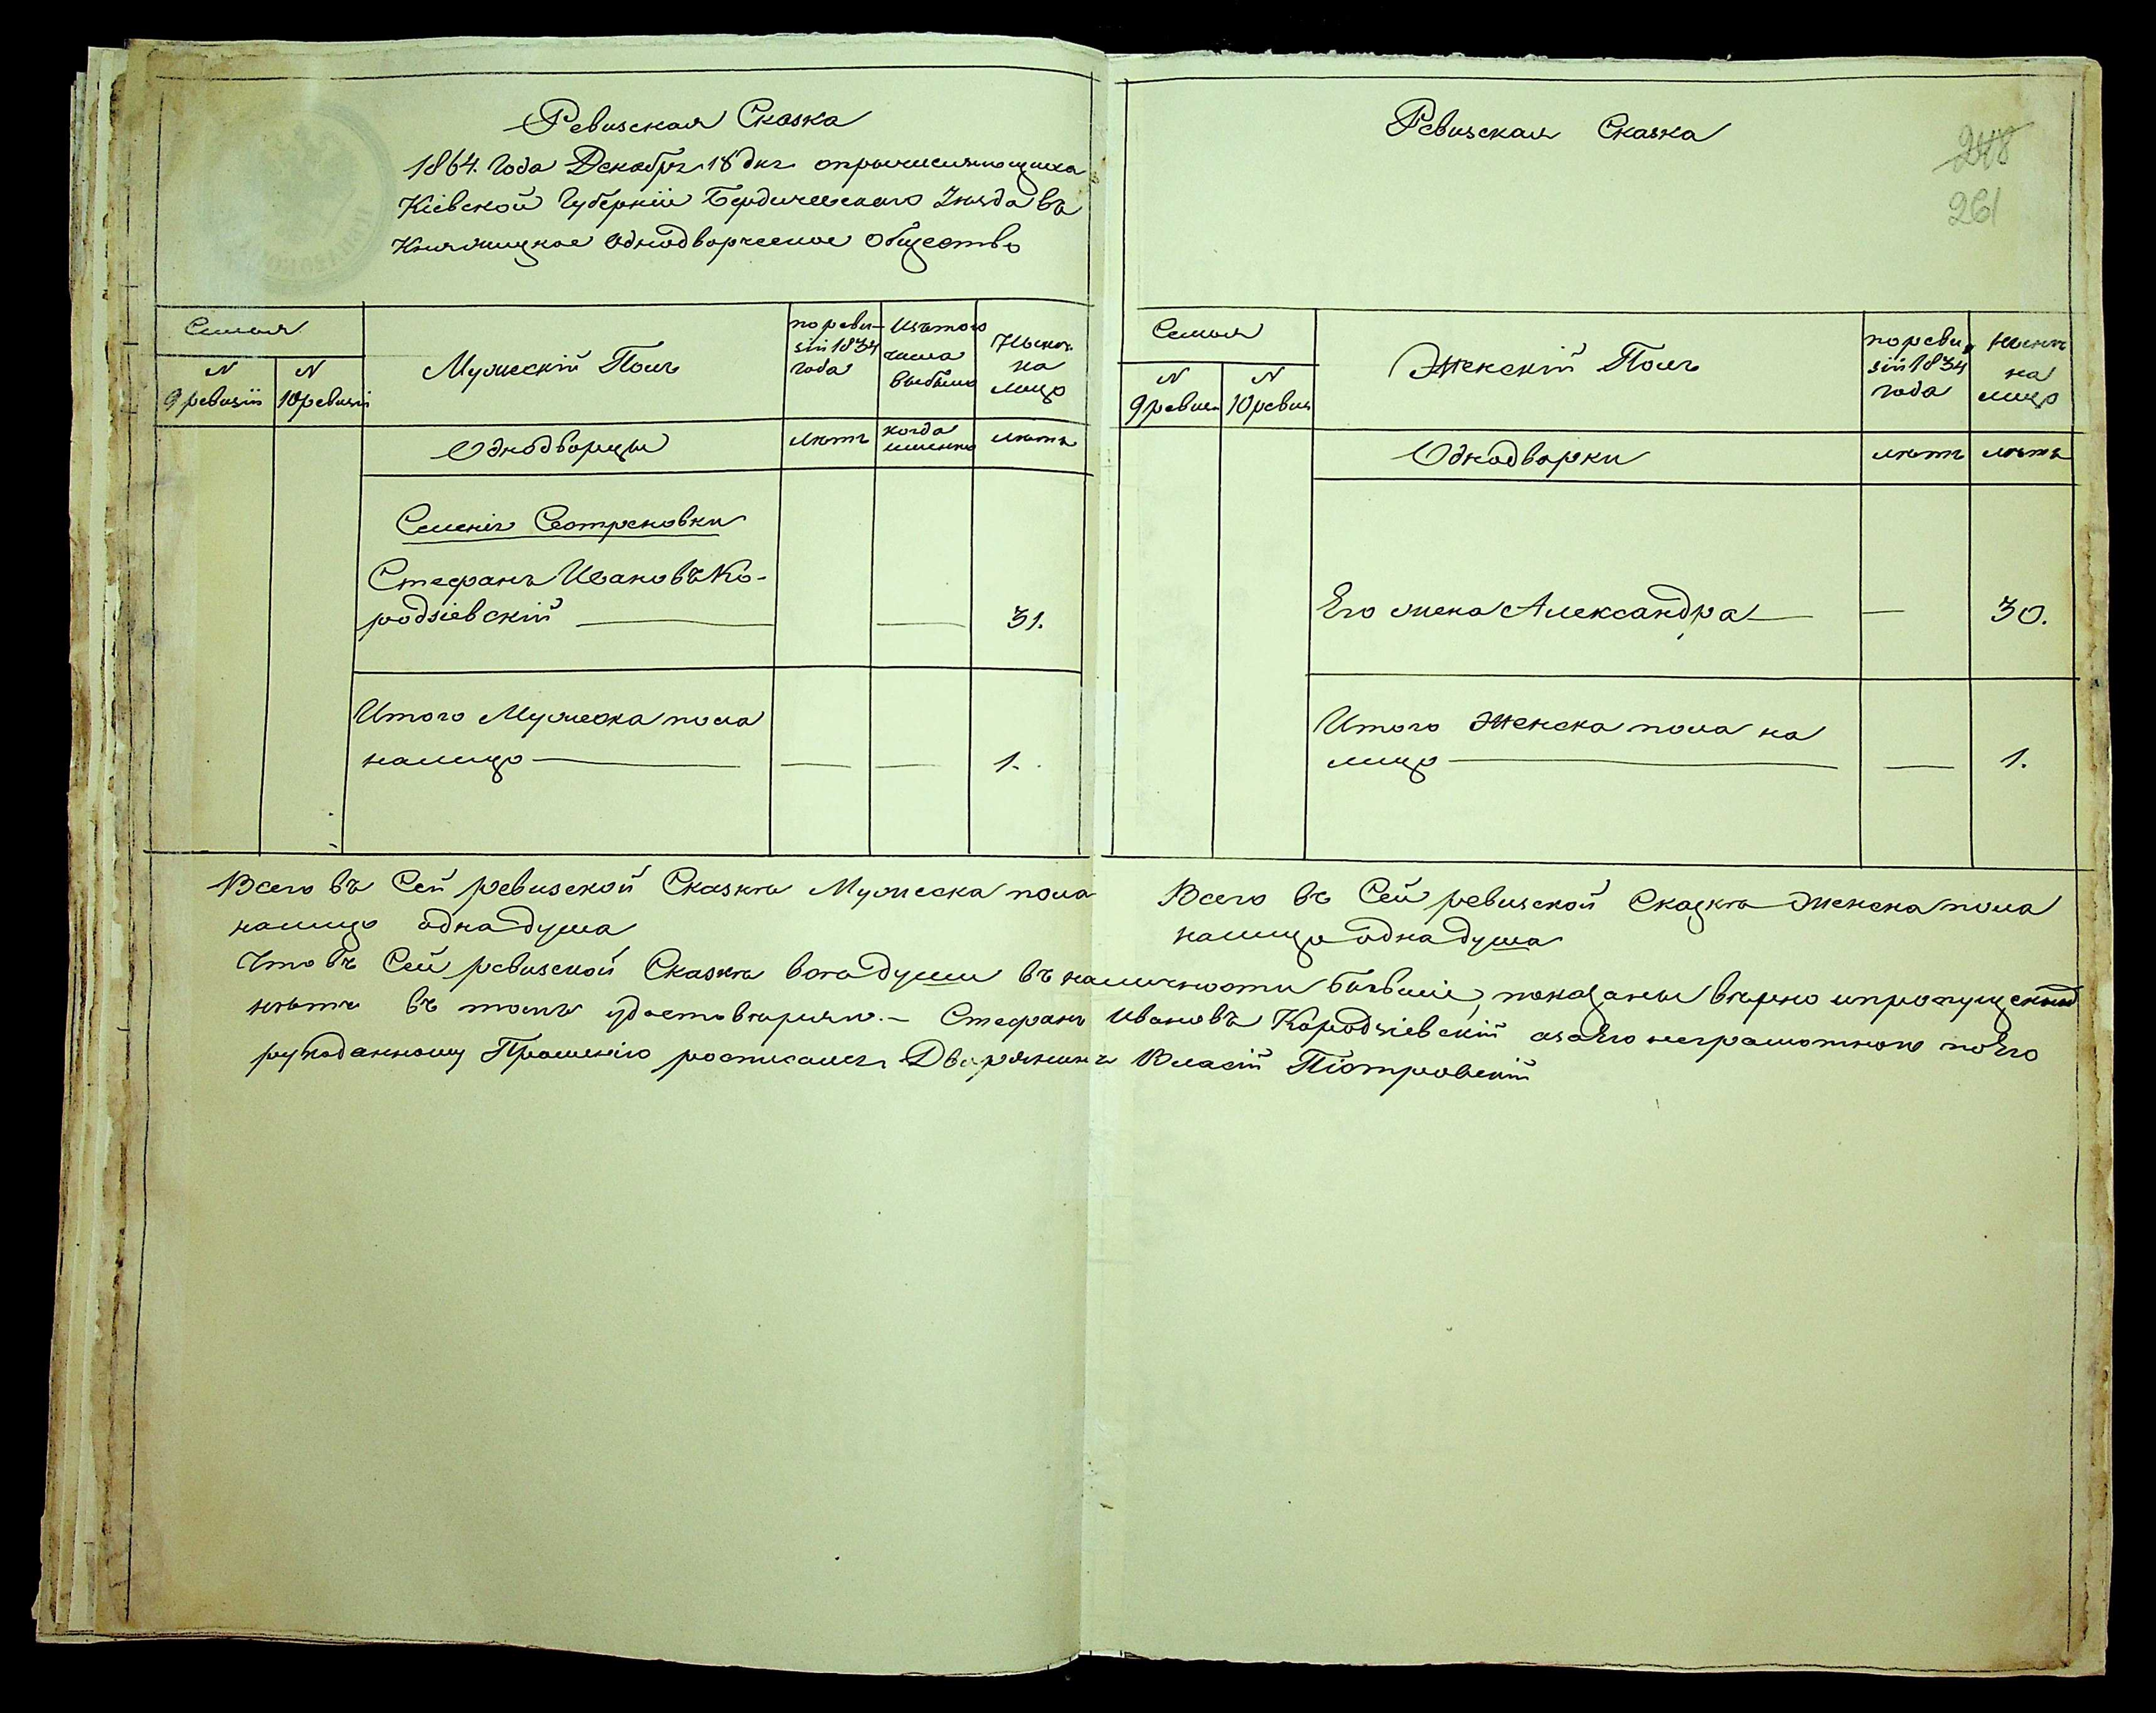 Ревизская Сказка
1864. Года Декабря 18 дня опричисляющихся
Кіевской Губерніи Бердичевскаго Уѣзда въ
Княжицкое Однодворческое Общество
Семья
N
9 ревизіи
N
10 ревизіи
Мужескій Полъ
по реви-
зіи 1834
года
Изъ того
числа
выбыло
Нынѣ
на
лицо
Однодворцы
лѣтъ
когда
именно
лѣтъ
Селенія Сестреновки
Стефанъ Ивановъ Ко-
родзіевскій
31.
Итого Мужеска пола
на лицо
1.
Всего въ Сей ревизской Сказкѣ Мужеска пола
на лицо одна душа
Ревизская Сказка
248
261
Семья
N
9 ревиз
N
10 ревиз
Женскій Полъ
по реви
зіи 1834
года
Нынѣ
на
лицо
Однодворки
лѣтъ
лѣтъ
Его жена Александра
30.
Итого Женска пола на
лицо
1.
Всего въ Сей ревизской Сказкѣ Женска пола
на лицо одна душа
Что въ Сей ревизской Сказкѣ всѣ души въ наличности бывшіе, показаны вѣрно и пропущенныхъ
нѣтъ въ томъ удостовѣряю. – Стефанъ Ивановъ Кородзіевскій а за Его неграмотного по Его
рукоданному Прошенію росписался Дворянинъ Власій Піотровскій